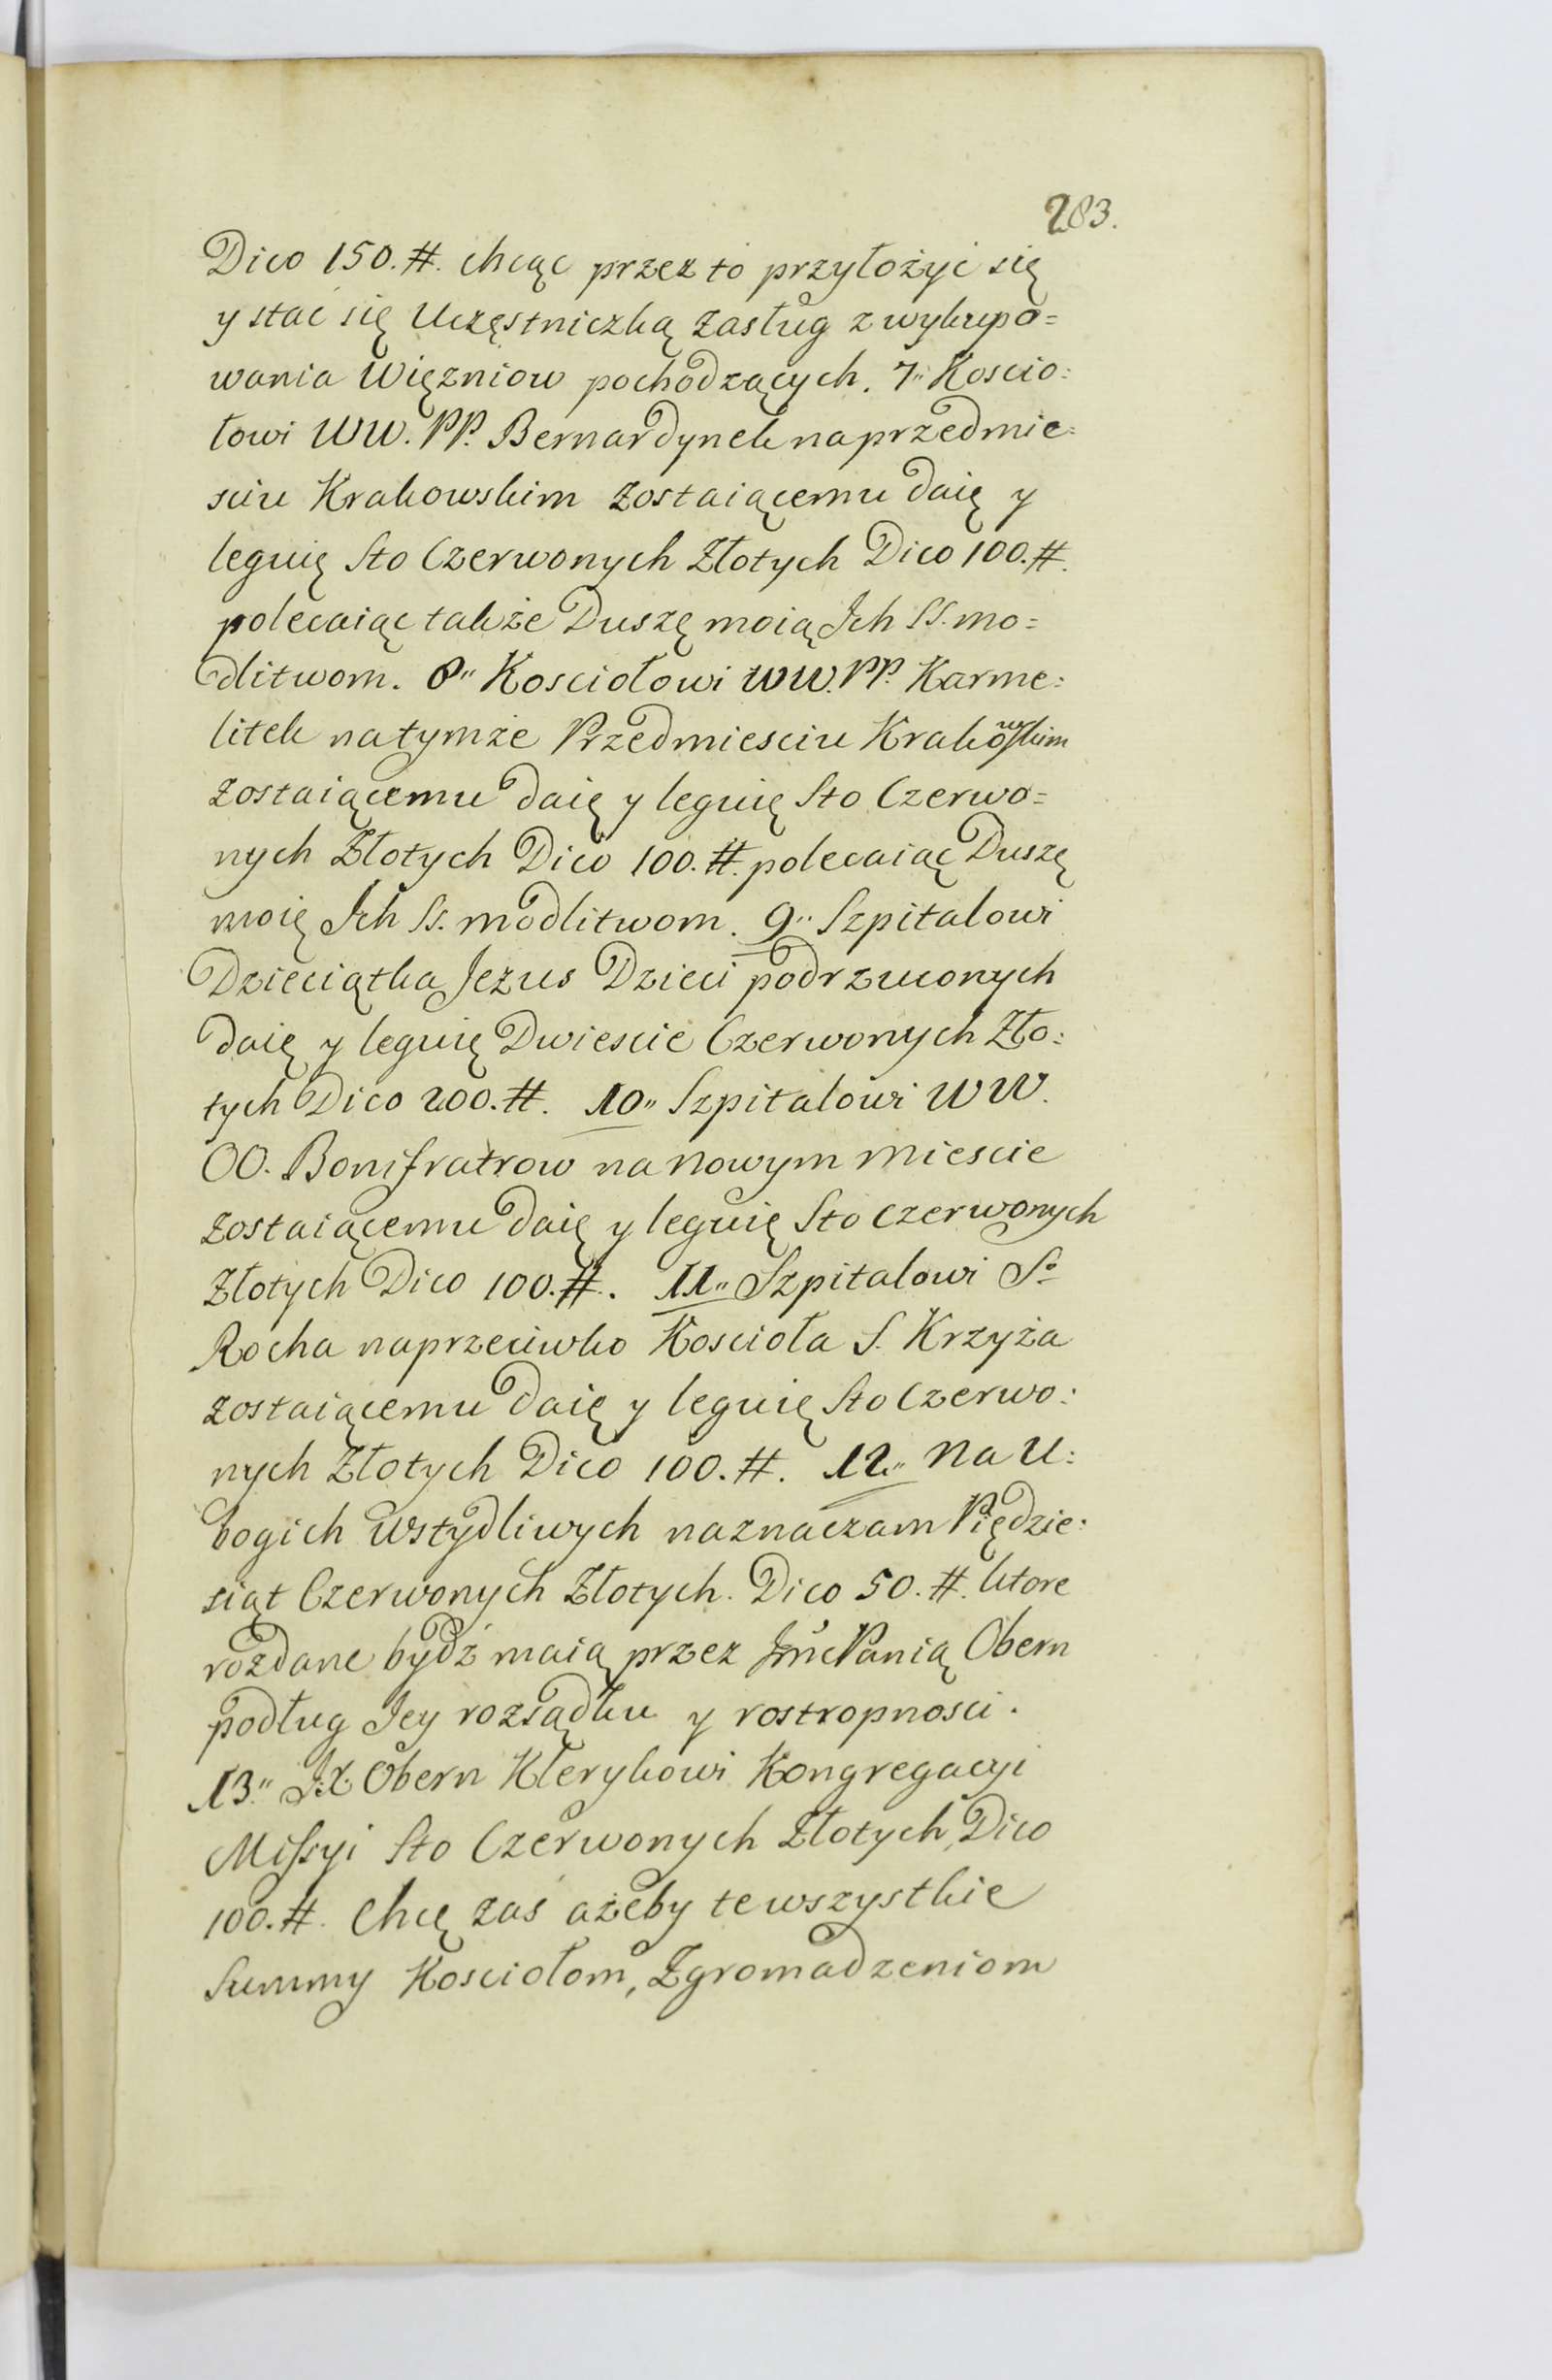 283.
Dico 150.#. chcąc przez to przyłożyć się
y stać się Uczęstniczką zasług z wykupo=
wania Więzniow pochodzących. 7" Koscio:
łowi WW. PP. Bernardynek na przedmie:
sciu Krakowskim zostaiącemu daię y
leguię Sto Czerwonych Złotych Dico 100.#.
polecaiąc także Duszę moią Ich SS. mo=
dlitwom. 8" Kosciołowi WW. PP. Karme:
litek na tymże Przedmiesciu Krakowskim
zostaiącemu daię y leguię Sto Czerwo=
nych Złotych Dico 100.#. polecaiąc Duszę
moię Ich SS. modlitwom. 9" Szpitalowi
Dzieciątka Jezus Dzieci podrzuconych
daię y leguię Dwiescie Czerwonych Zło:
tych Dico 200.#. 10" Szpitalowi WW.
OO. Bonifratrow na nowym miescie
zostaiącemu daię y leguię Sto czerwonych
Złotych Dico 100.#. 11" Szpitalowi So
Rocha naprzeciwko Koscioła S. Krzyża
zostaiącemu daię y leguię Sto Czerwo:
nych Złotych Dico 100.#. 12" Na U:
bogich wstydliwych naznaczam Piędzie:
siąt Czerwonych Złotych. Dico 50.#. ktore
rozdane bydź maią przez Jmć Panią Obern
podług Jey rozsądku y rostropnosci.
13" J.X. Obern Klerykowi Kongregacyi
Missyi Sto Czerwonych Złotych Dico
100.#. Chcę zaś ażeby te wszystkie
Summy Kosciołom, Zgromadzeniom